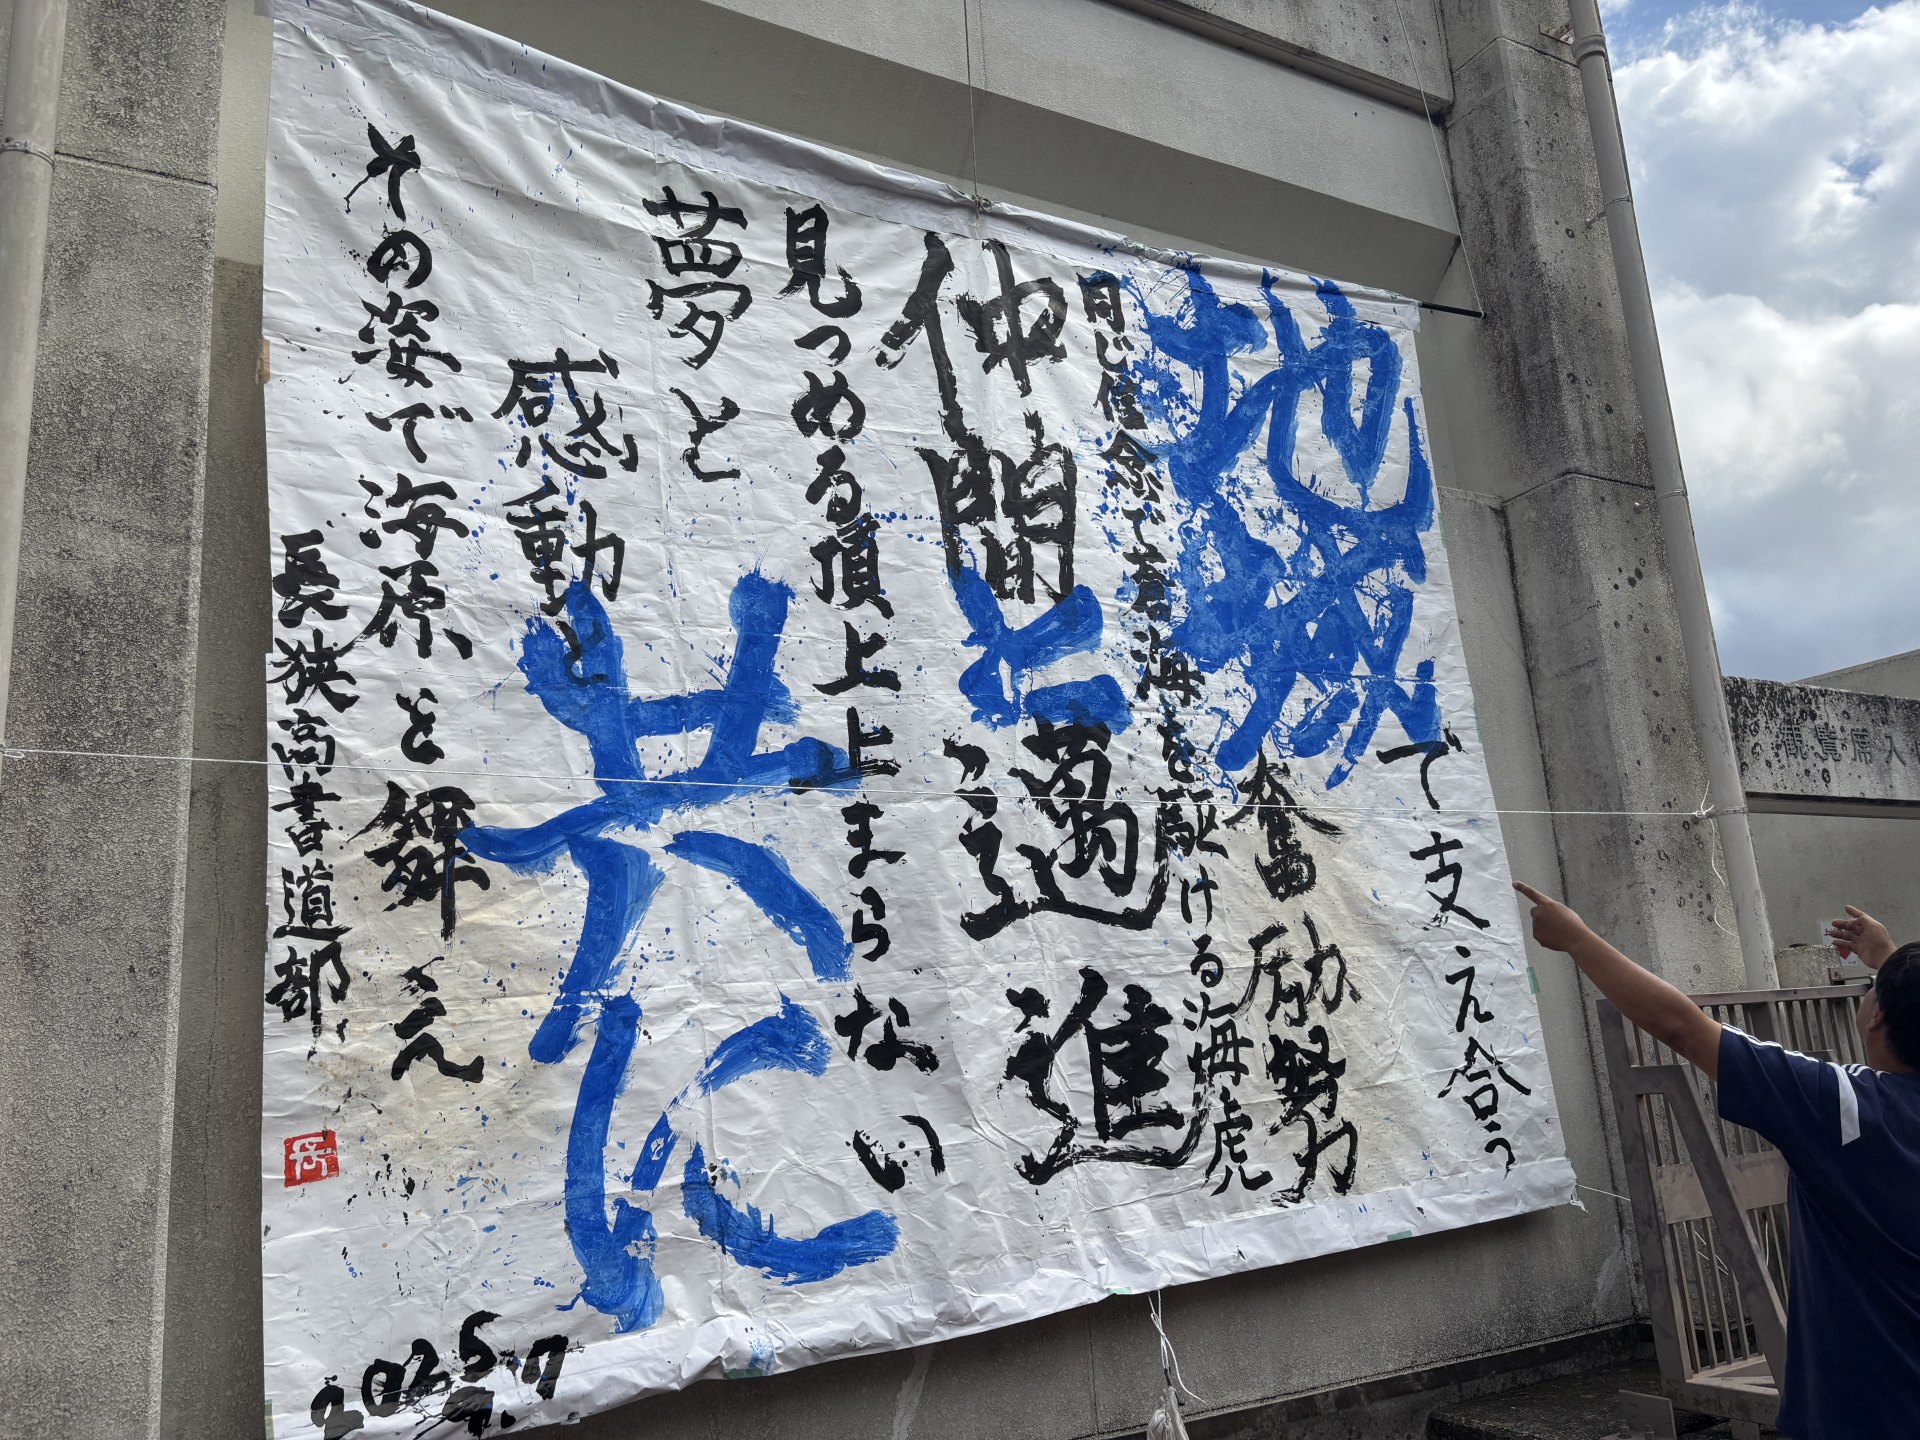 地域で支え合う
奮励努力
同じ信念で蒼海を駆ける海虎
仲間と邁進
見つめる頂上止まらない
夢と
感動と
共に
その姿で海原を舞え
長狭高書道部
2025
9.7
観覧席入